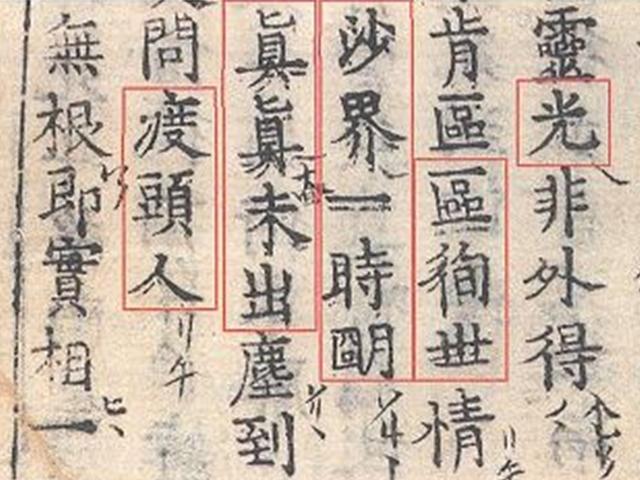 靈光非外得
肯區區徇丗情
沙界一時朙
眞眞未出塵到
問痠頭人
無根即實相一